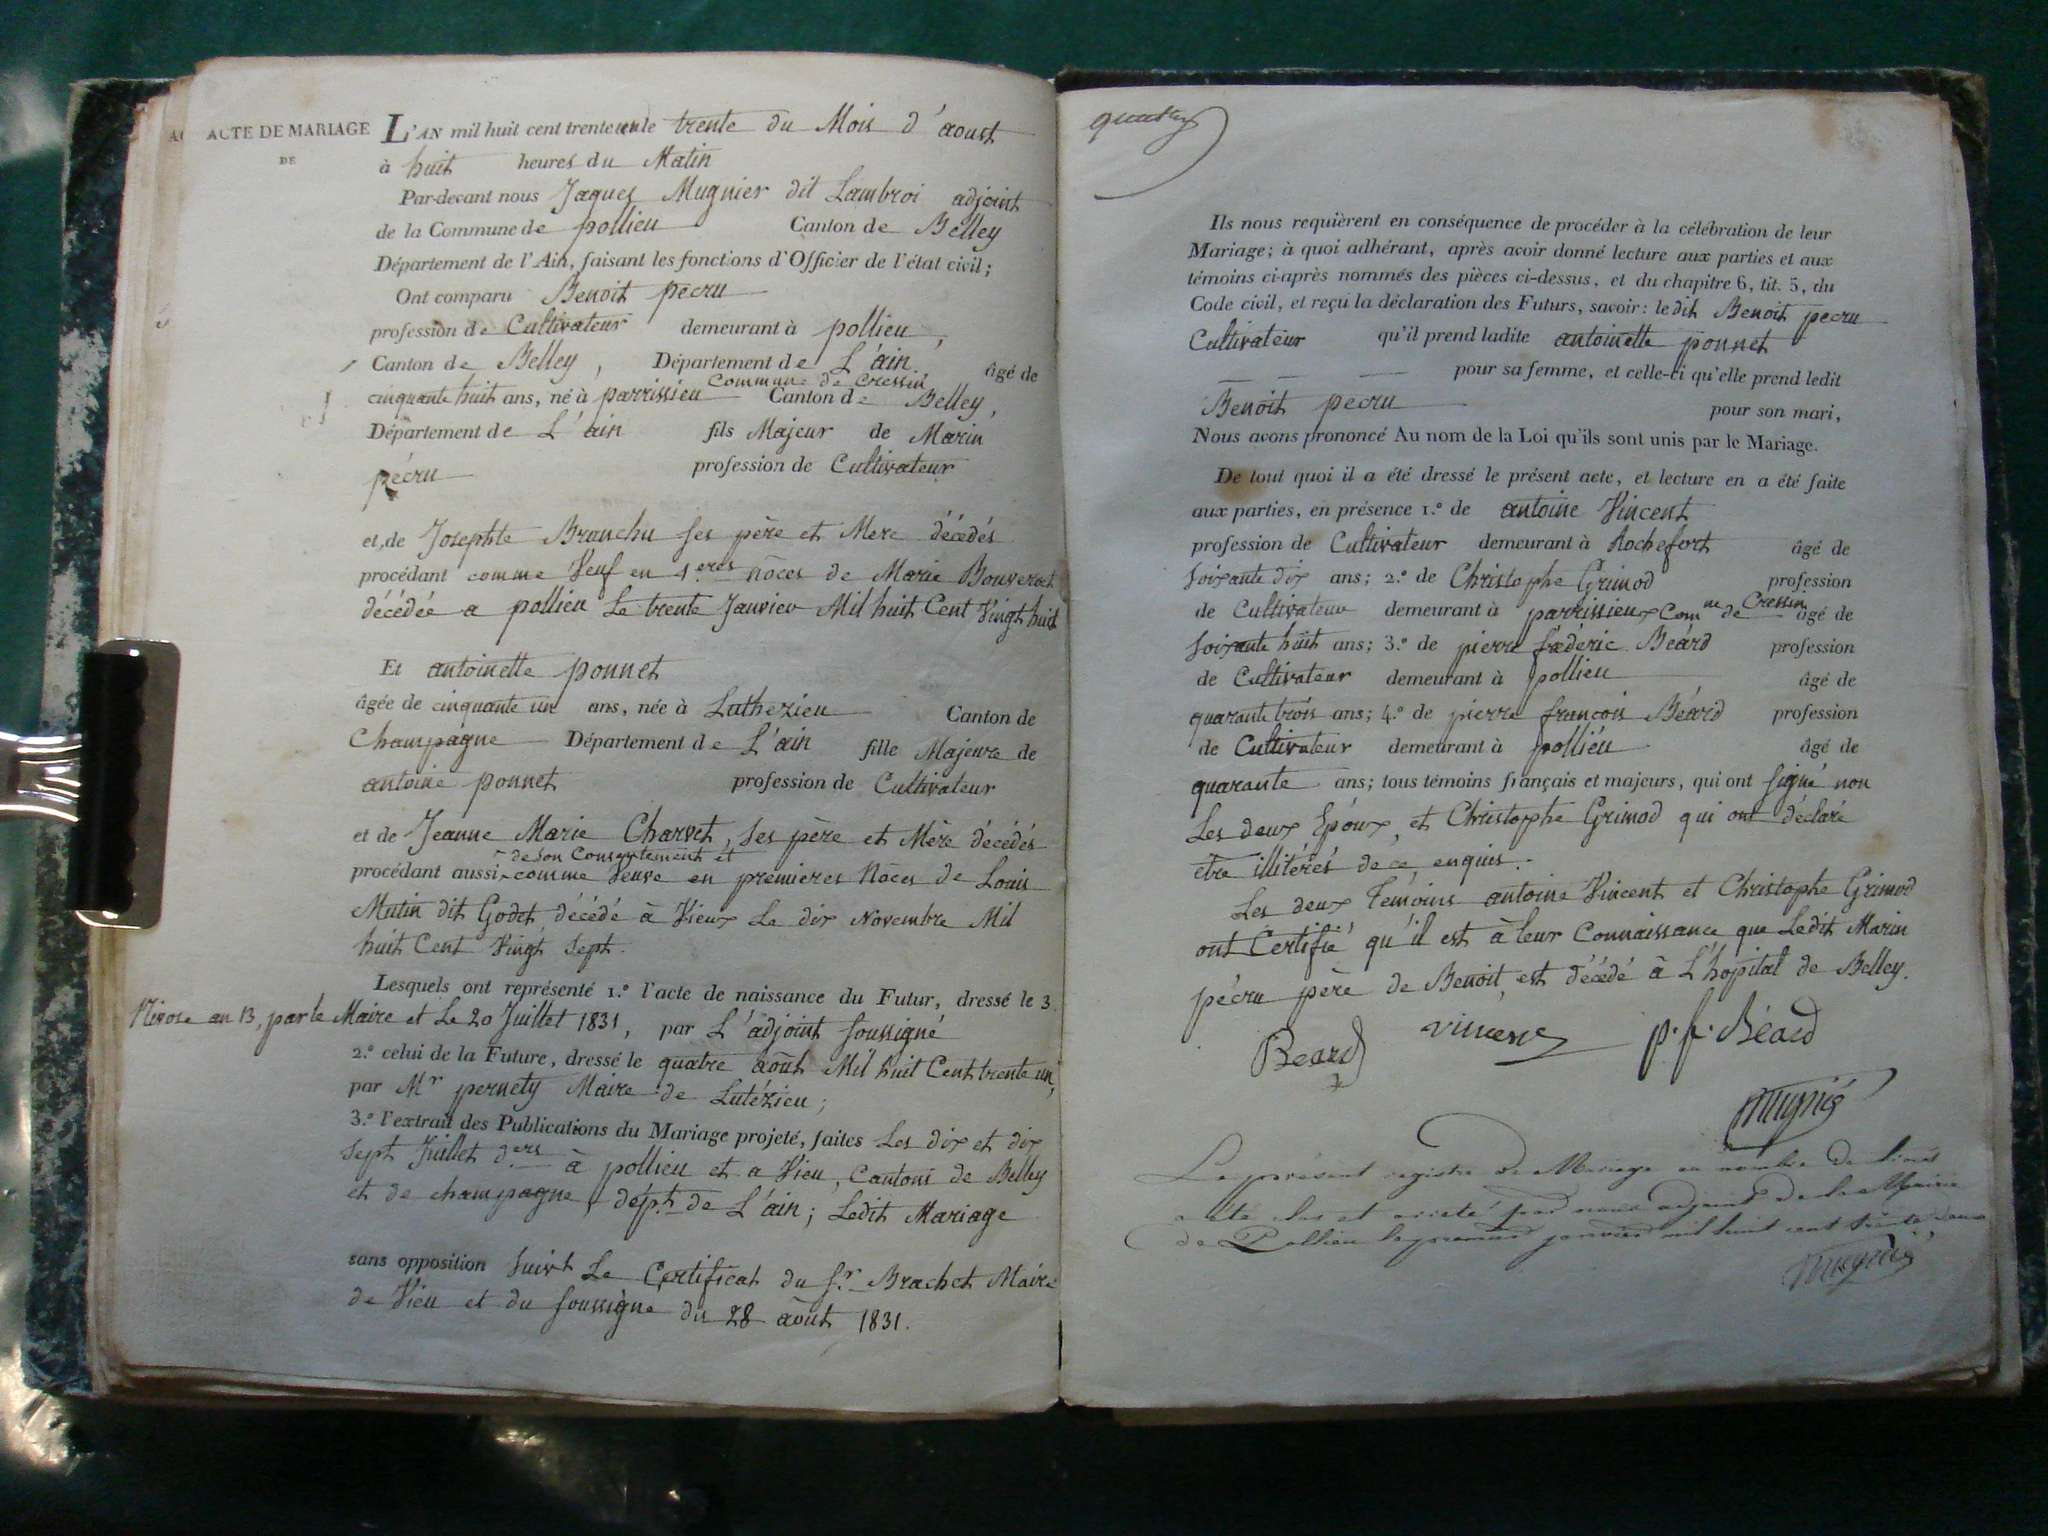 ACTE DE MARIAGE
DE
L'AN mil huit cent trente un le trente du Mois d'aoust
à huit heures du Matin
Par-devant nous Jaques Mugnier dit Lambroi adjoint
de la Commune de pollieu Canton de Belley
Département de l'Ain, faisant les fonctions d'Officier de l'état civil;
Ont comparu Benoit pecru
profession de Cultivateur demeurant à pollieu,
Canton de Belley, Département de L'ain. âgé de
cinquante huit ans, né à parrissieu Commune de Cressin Canton de Belley,
Département de L'ain fils Majeur de Marin
pécru profession de Cultivateur
et de Josephte Branchu ses père et Mere décédés
procédant comme Veuf en 1.eres nôces de Marie Bouveret
décédée a pollieu Le trente Janvier Mil huit Cent Vingt huit
Et antoinette ponnet
âgée de cinquante un ans, née à Luthezieu Canton de
Champagne Département de L'ain fille Majeure de
antoine ponnet profession de Cultivateur
et de Jeanne Marie Charvet, ses père et Mère décédés
procédant aussi de son Consentement et comme Veuve en premieres Nôces de Louis
Mutin dit Godet décédé à Vieux Le dix Novembre Mil
huit Cent Vingt Sept.
Lesquels ont représenté 1.º l'acte de naissance du Futur, dressé le 3
Nivose an 13, par le Maire et Le 20 Juillet 1831, par L'adjoint soussigné
2.º celui de la Future, dressé le quatre août Mil huit Cent trente un,
par Mr pernety Maire de Lutézieu;
3.º l'extrait des Publications du Mariage projeté, faites Les dix et dix
sept Juillet d.ers à pollieu et a Vieu, Cantons de Belley
et de champagne, dépt. de L'ain; Ledit Mariage
sans opposition suivt Le Certificat du Sr. Brachet Maire
de Vieu et du soussigné du 28 août 1831.
Ils nous requièrent en conséquence de procéder à la célébration de leur
Mariage; à quoi adhérant, après avoir donné lecture aux parties et aux
témoins ci-après nommés des pièces ci-dessus, et du chapitre 6, tit. 5, du
Code civil, et reçu la déclaration des Futurs, savoir: le dit Benoit pecru
Cultivateur qu'il prend ladite antoinette ponnet
pour sa femme, et celle-ci qu'elle prend ledit
Benoit pecru pour son mari,
Nous avons prononcé Au nom de la Loi qu'ils sont unis par le Mariage.
De tout quoi il a été dressé le présent acte, et lecture en a été faite
aux parties, en présence 1.º de antoine Vincent
profession de Cultivateur demeurant à Rochefort âgé de
soixante dix ans; 2.º de Christophe Grimod profession
de Cultivateur demeurant à parrissieux Comne de Cressin âgé de
soixante huit ans; 3.º de pierre fréderic Béard profession
de Cultivateur demeurant à pollieu âgé de
quarante trois ans; 4.º de pierre françois Béard profession
de Cultivateur demeurant à polliéu âgé de
quarante ans; tous témoins français et majeurs, qui ont signé non
Les deux Époux, et Christophe Grimod qui ont déclaré
etre illitérés de ce enquis.
Les deux Témoins antoine Vincent et Christophe Grimod
ont Certifié qu'il est à leur Connaissance que Ledit Marin
pécru père de Benoit, est décédé à L'hopital de Belley.
Beard vincent p. f. Béard
mugnié
Le présent registre de Mariage au nombre de
a été clos et arreté par nous adjoint de la Mairie
de Pollieu le premier janvier mil huit cent trente deux
mugnié